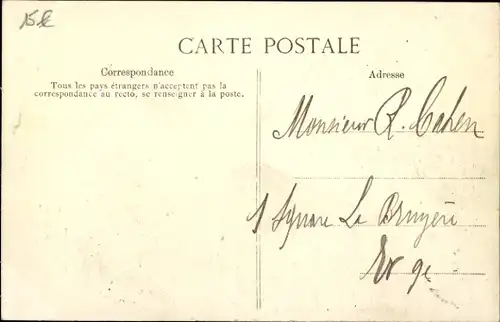 CARTE POSTALE
Correspondance
Tous les pays étrangers n'acceptent pas la
correspondance au recto, se renseigner à la poste.
Adresse
Monsieur R. Cahen
1 Square La Bruyère